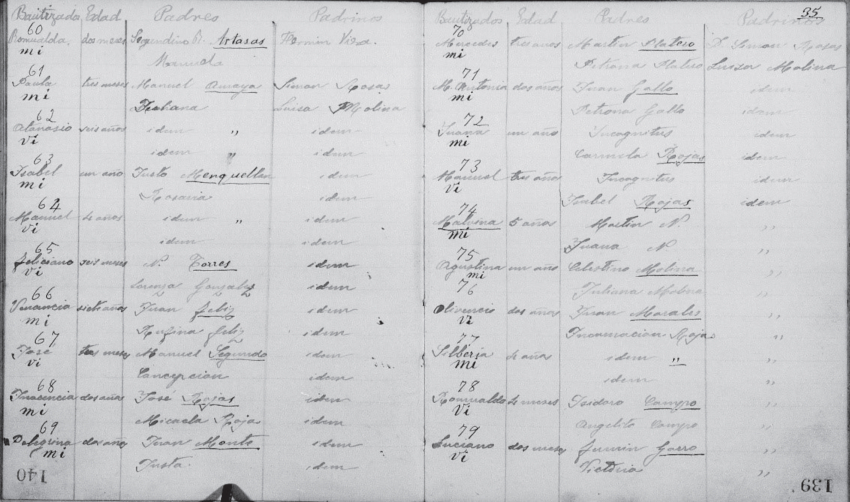 Bautizados Edad Padres Padrinos
60
Romualda dos meses Segundino Artasas Fermin Viera
mi Manuela
61
Paula tres meses Manuel Amaya Simon Rosas
mi Fabiana Luisa Molina
62
Atanasio seis años idem " idem
vi idem " idem
63
Isabel un año Justo idem
mi Rosaria idem
64
Manuel 4 años idem " idem
vi idem idem
65
Feliciano seis meses N. Torres idem
vi Lorenza Gonzalez idem
66
Venancia siete años Juan Feliz idem
mi Rufina Feliz idem
67
José tres meses Manuel Segundo idem
vi Concepcion idem
68
Inocencia dos años José Rojas idem
mi Micaela Rojas idem
69
Pelegrina dos años Juan Monte idem
mi Justa idem
140
35
Bautizados Edad Padres Padrinos
70
Mercedes tres meses Martin Platero D. Simon Rosas
mi Petrona Platero Luisa Molina
71
M. Antonia dos años Juan Gallo idem
mi Petrona Gallo idem
72
Juana un año Incognitus idem
mi Carmela Rojas idem
73
Manuel tres años Incognitus idem
vi Isabel Rojas idem
74
Malvina 5 años Martin N. "
mi Juana N. "
75
Agustina un año Celestino Molina "
mi Juliana Molina "
76
Olivencio dos años Juan Morales "
vi Encarnacion Rojas "
77
Silberia 4 años idem " "
mi idem "
78
Romualdo 4 meses Isidoro Campo "
vi Angelita Campo "
79
Luciano dos meses Fermin "
vi Victoria "
139